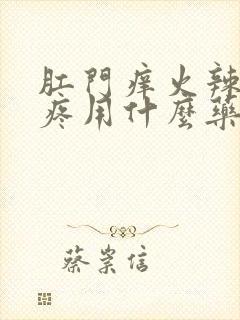 肛門痒火辣
疼用什麼藥
蔡崇信